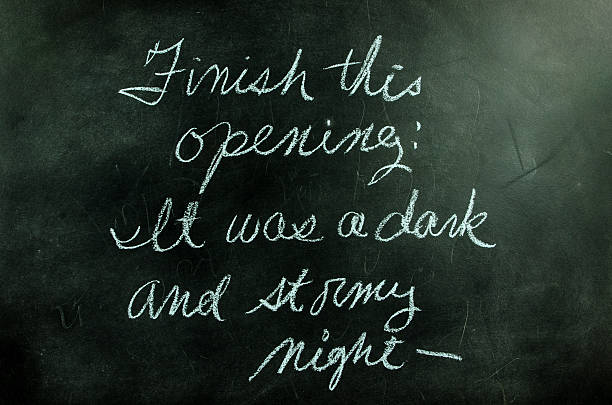 Finish this
opening:
It was a dark
and stormy
night—